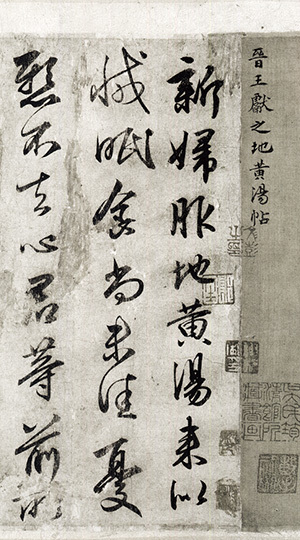 晉王獻之地黃湯帖
新婦服地黃湯來似
減眠食尚未佳憂
懸不去心君等前所